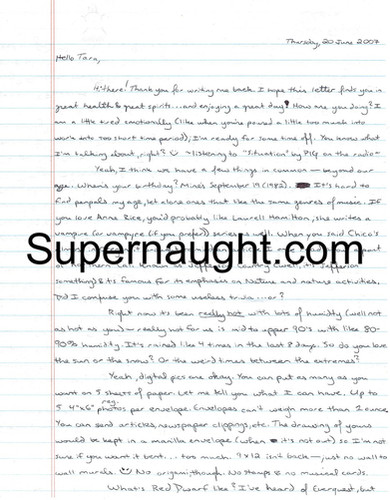 Thursday, 20 June 2007
Hello Tara,
Hi there! Thank you for writing me back. I hope this letter finds you in
great health & great spirits...and enjoying a great day! How are you doing? I
am a little tired emotionally (like when you've poured a little too much into
work into too short time period), I'm ready for some time off. You know what
I'm talking about, right? listening to "Situation" by PIG on the radio
Yeah, I think we have a few things in common - beyond our
age. When's your birthday? Mine's September 19 (1982). It's hard to
find penpals my age, let alone ones that like the same genres of music. If
you love Anne Rice, you'd probably like Laurell Hamilton, she writes a
vampire (or vampyre if you prefer) series as well. When you said Chico's
Supernaught.com
something) & its famous for its emphasis on Nature and nature activities,
Did I confuse you with some useless trivia...or?
Right now its been really hot with lots of humidity (well not
as hot as you) - really hot for us is mid to upper 90's with like 80-
90% humidity. It's rained like 4 times in the last 8 days. So do you love
the sun or the snow? Or the weird times between the extremes?
Yeah, digital pics are okay. You can put as many as you
want on 5 sheets of paper. Let me tell you what I can have. Up to
5 4"x6" reg. photos per envelope. Envelopes can't weigh more than 1 ounce.
You can send articles, newspaper clippings, etc. The drawing of yours
would be kept in a manilla envelope (when it's not out) so I'm not
sure if you want it bent... too much. 9x12 isn't back - just no wall to
wall murals. No origami, though. No stamps & no musical cards.
What's Red Dwarf like? I've heard of Everquest, but